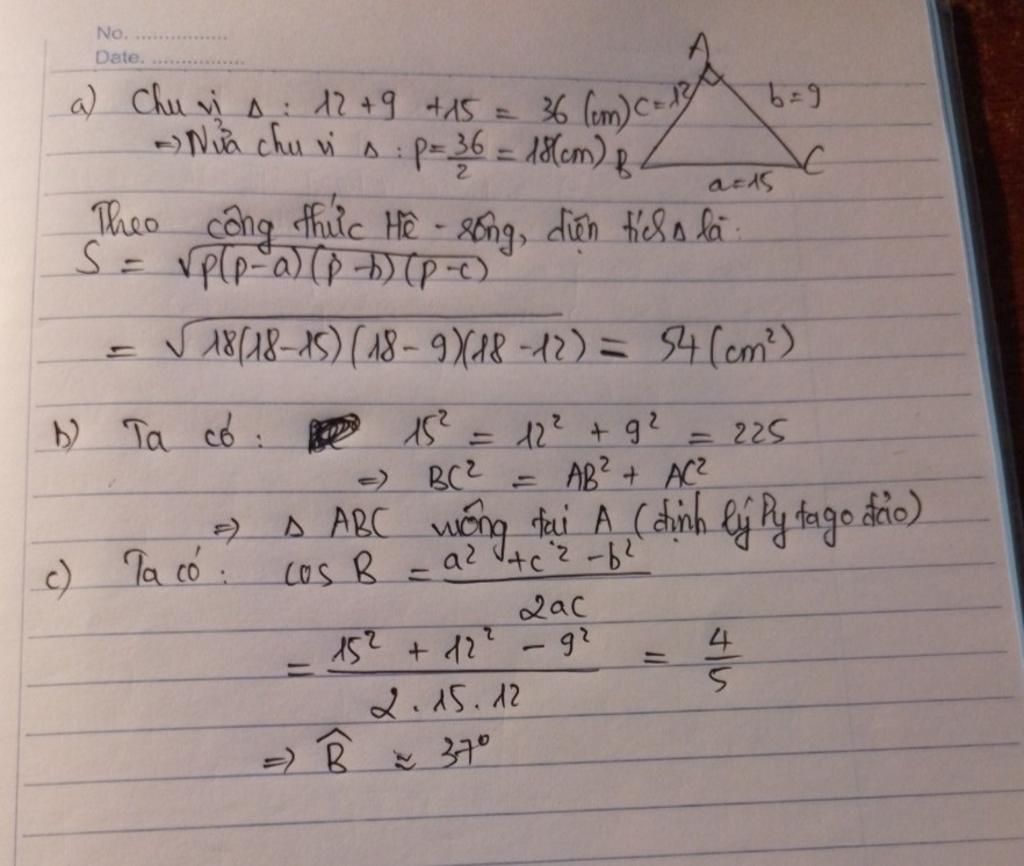 No. ................
Date. ................
a) Chu vi Δ : 12 + 9 + 15 = 36 (cm)
⇒ Nửa chu vi Δ : p = 36/2 = 18(cm)
A
c = 12
b = 9
B
C
a = 15
Theo công thức Hê - rông, diện tích Δ là :
S = √p(p-a)(p-b)(p-c)
= √18(18-15)(18-9)(18-12) = 54 (cm²)
b) Ta có : 15² = 12² + 9² = 225
⇒ BC² = AB² + AC²
⇒ Δ ABC vuông tại A (định lý Pytago đảo)
c) Ta có : cos B = a² + c² - b² / 2ac
= 15² + 12² - 9² / 2 . 15 . 12 = 4/5
⇒ B̂ ≈ 37°